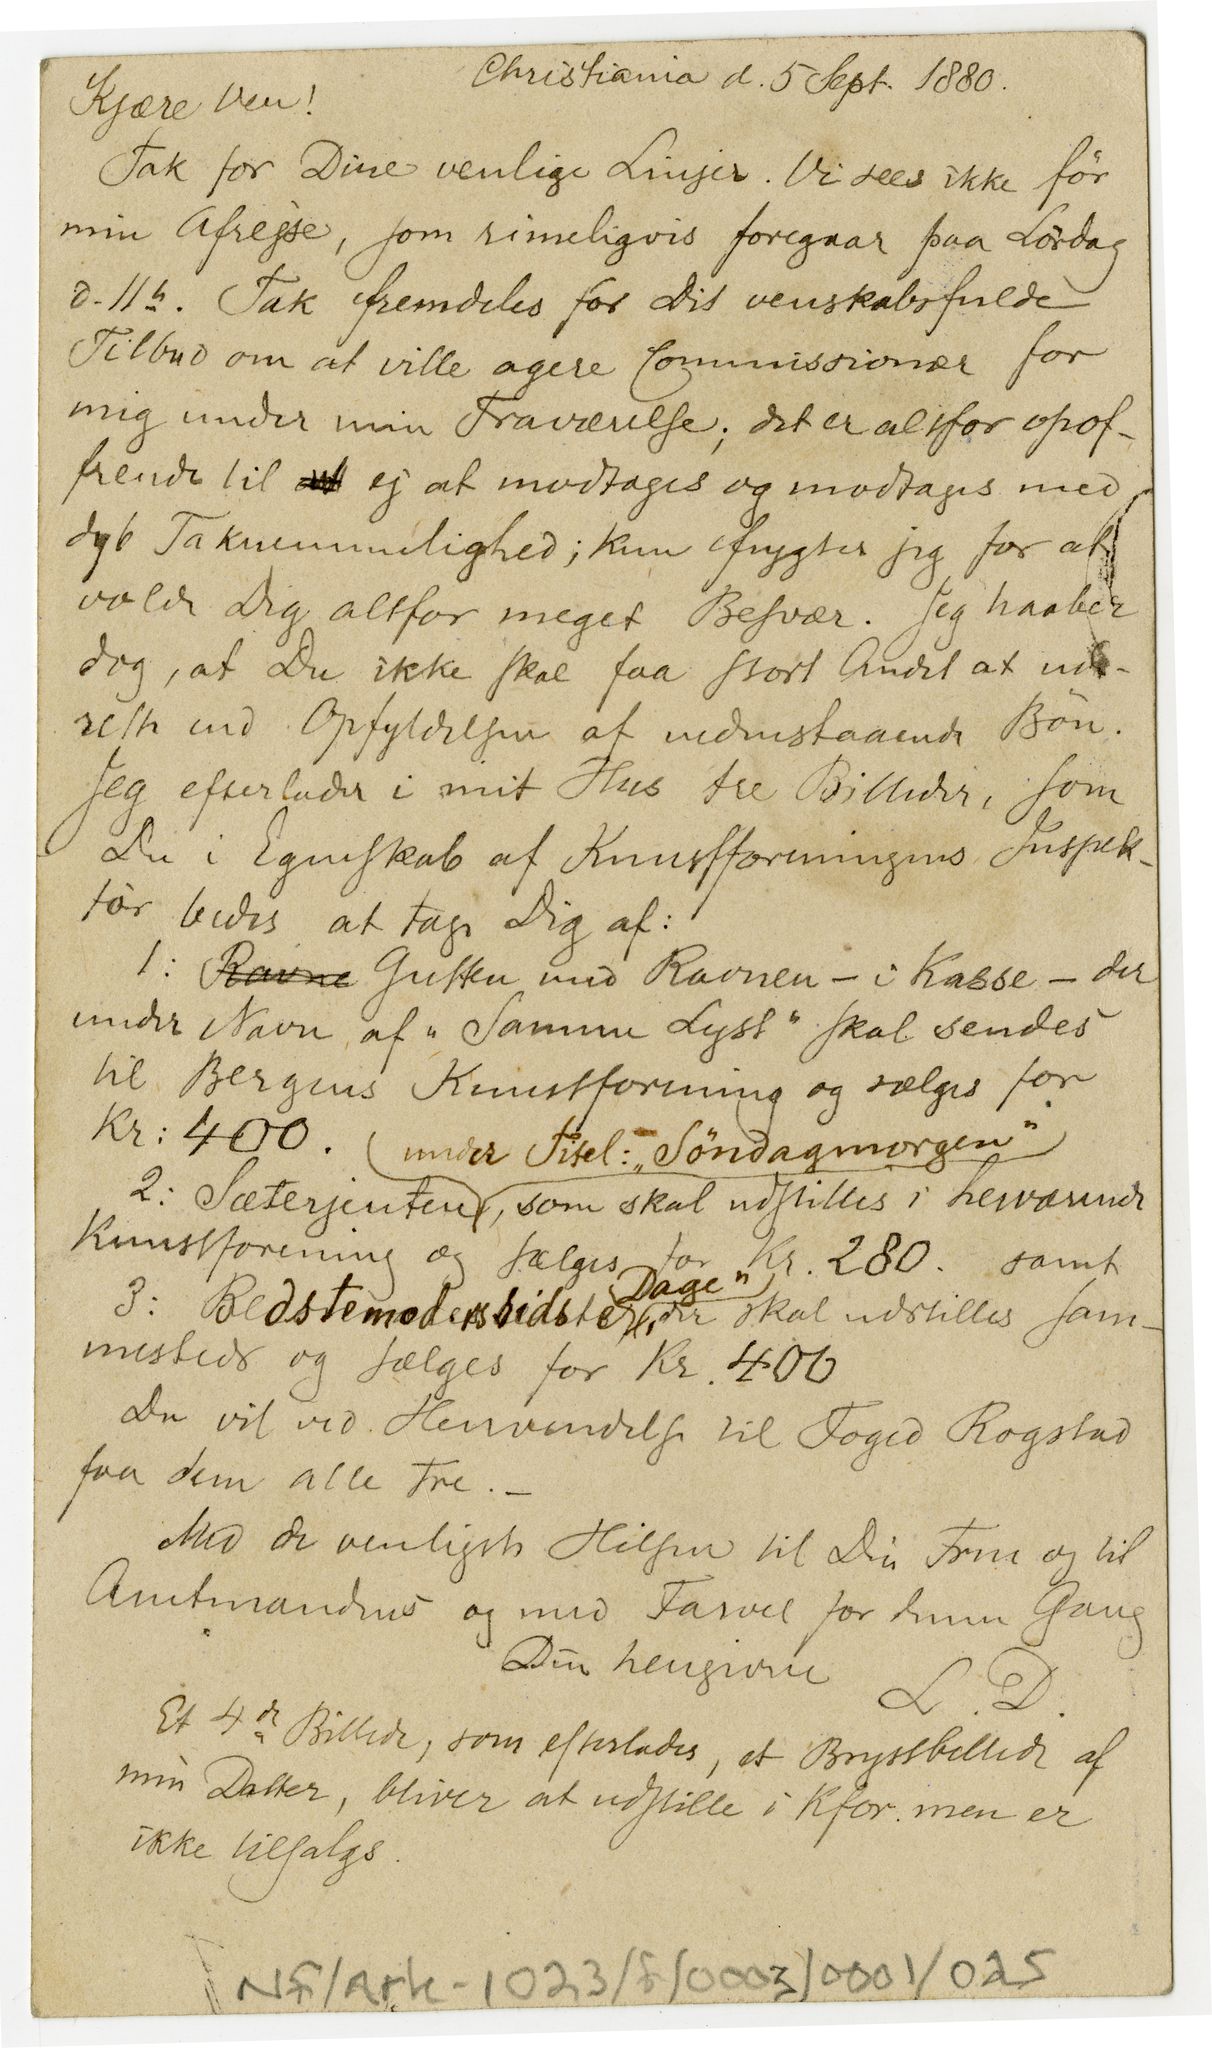 Christiania d. 5 Sept. 1880.
Kjære Ven!
Tak for Dine venlige Linjer. Vi sees ikke før
min Afrejse, som rimeligvis foregaar paa Lørdag
d. 11te. Tak fremdeles for Dit venskabsfulde
Tilbud om at ville agere Commissionær for
mig under min Fraværelse; det er altfor opof-
frende til ej at modtages og modtages med
dyb Taknemmelighed; kun frygter jeg for at
volde Dig altfor meget Besvær. Jeg haaber
dog, at Du ikke skal faa stort Andet at ud-
rette end Opfyldelsen af nedenstaaende Bøn.
Jeg efterlader i mit Hus tre Billeder, som
Du i Egenskab af Kunstforeningens Inspek-
tør bedes at tage Dig af:
1: Ravne Gutten med Ravnen – i Kasse – der
under Navn af "Samme Lyst" skal sendes
til Bergens Kunstforening og sælges for
Kr: 400.
(under Titel: "Søndagmorgen")
2: Sæterjenten, som skal udstilles i herværende
Kunstforening og sælges for Kr. 280. samt
Dage"
3: Bedstemoders sidste, der skal udstilles sam-
mesteds og sælges for Kr. 400
Du vil ved Henvendelse til Foged Rogstad
faa dem alle tre. –
Med de venligste Hilsner til Din Frue og til
Amtmandens og med Farvel for denne Gang
Din hengivne
L. D.
Et 4de Billede, som efterlades, et Brystbillede af
min Datter, bliver at udstille i Kfor. men er
ikke tilsalgs.
NF/Ark-1023/F/0003/0001/025